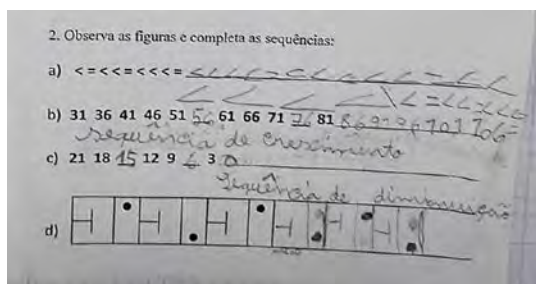 2. Observa as figuras e completa as sequências:
a) < = < < = < < < = < < < < = < < < < < = < <
< < < < < = < < < < <
b) 31 36 41 46 51 56 61 66 71 76 81 86 91 96 101 106=
Sequência de crescimento
c) 21 18 15 12 9 6 3 0
Sequência de diminuição
d)